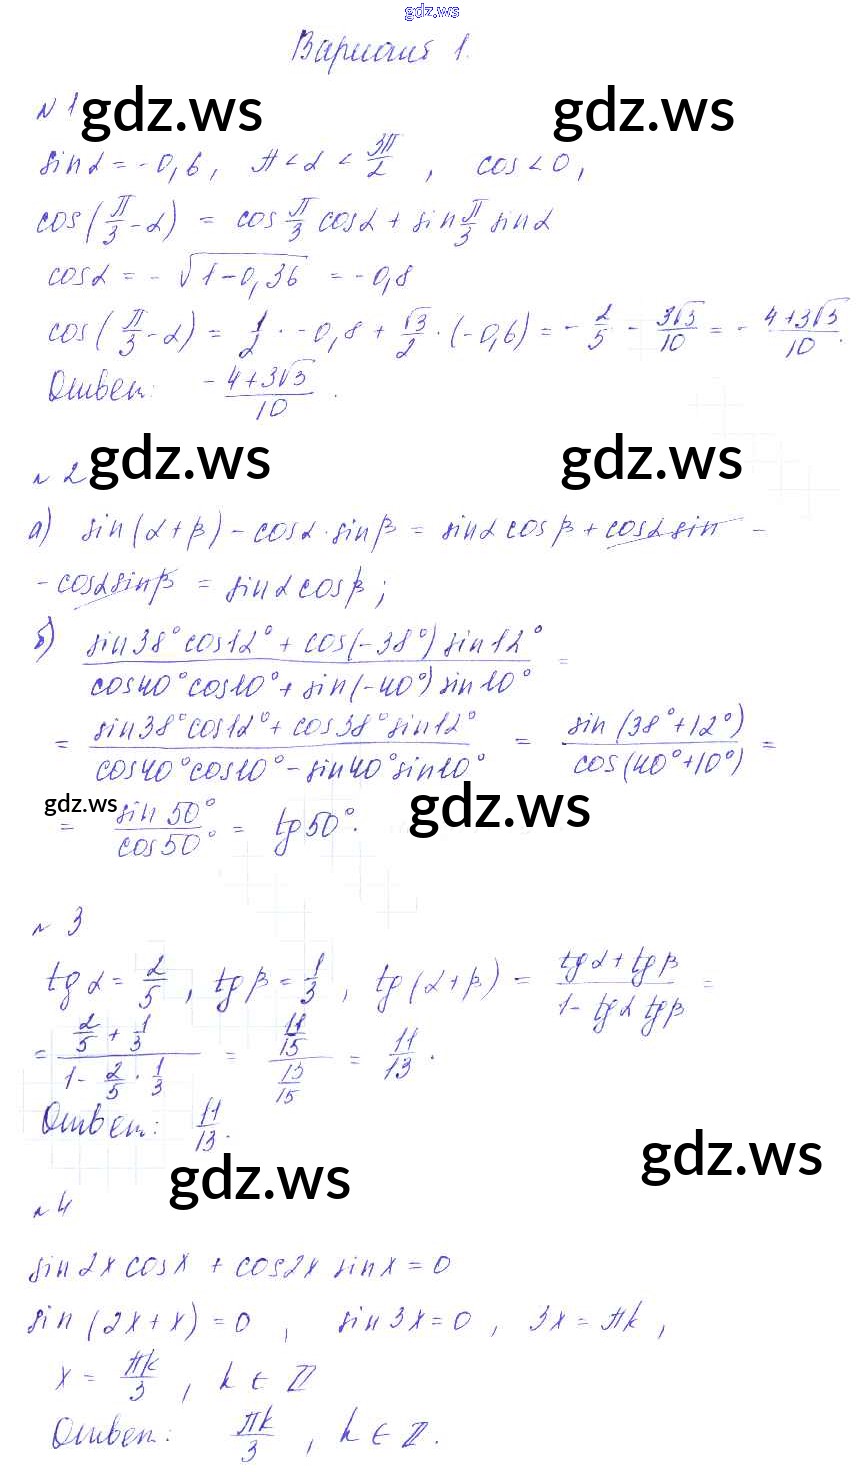 gdz.ws
Вариант 1.
№ 1 gdz.ws gdz.ws
sin α = -0,6, π < α < 3π/2, cos < 0,
cos(π/3 - α) = cos π/3 cos α + sin π/3 sin α
cos α = -√(1-0,36) = -0,8
cos(π/3 - α) = 1/2 · -0,8 + √3/2 · (-0,6) = -2/5 - 3√3/10 = -(4+3√3)/10.
Ответ: -(4+3√3)/10.
№ 2 gdz.ws gdz.ws
а) sin(α+β) - cos α · sin β = sin α cos β + cos α sin -
- cos α sin β = sin α cos β;
б) (sin 38° cos 12° + cos(-38°) sin 12°)/(cos 40° cos 10° + sin(-40°) sin 10°) =
= (sin 38° cos 12° + cos 38° sin 12°)/(cos 40° cos 10° - sin 40° sin 10°) = sin(38°+12°)/cos(40°+10°) =
gdz.ws gdz.ws
= sin 50°/cos 50° = tg 50°.
№ 3
tg α = 2/5, tg β = 1/3, tg(α+β) = (tg α + tg β)/(1 - tg α tg β) =
= (2/5 + 1/3)/(1 - 2/5 · 1/3) = (11/15)/(13/15) = 11/13.
Ответ: 11/13.
gdz.ws gdz.ws
№ 4
sin 2x cos x + cos 2x sin x = 0
sin(2x+x) = 0, sin 3x = 0, 3x = πk,
x = πk/3, k ∈ ℤ
Ответ: πk/3, k ∈ ℤ.